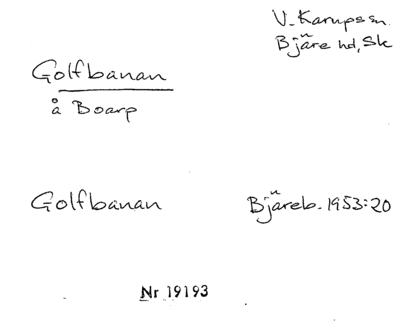 V. Karups sn.
Bjäre hd, Sk
Golfbanan
å Boarp
Golfbanan
Bjäreb. 1953:20
Nr 19193